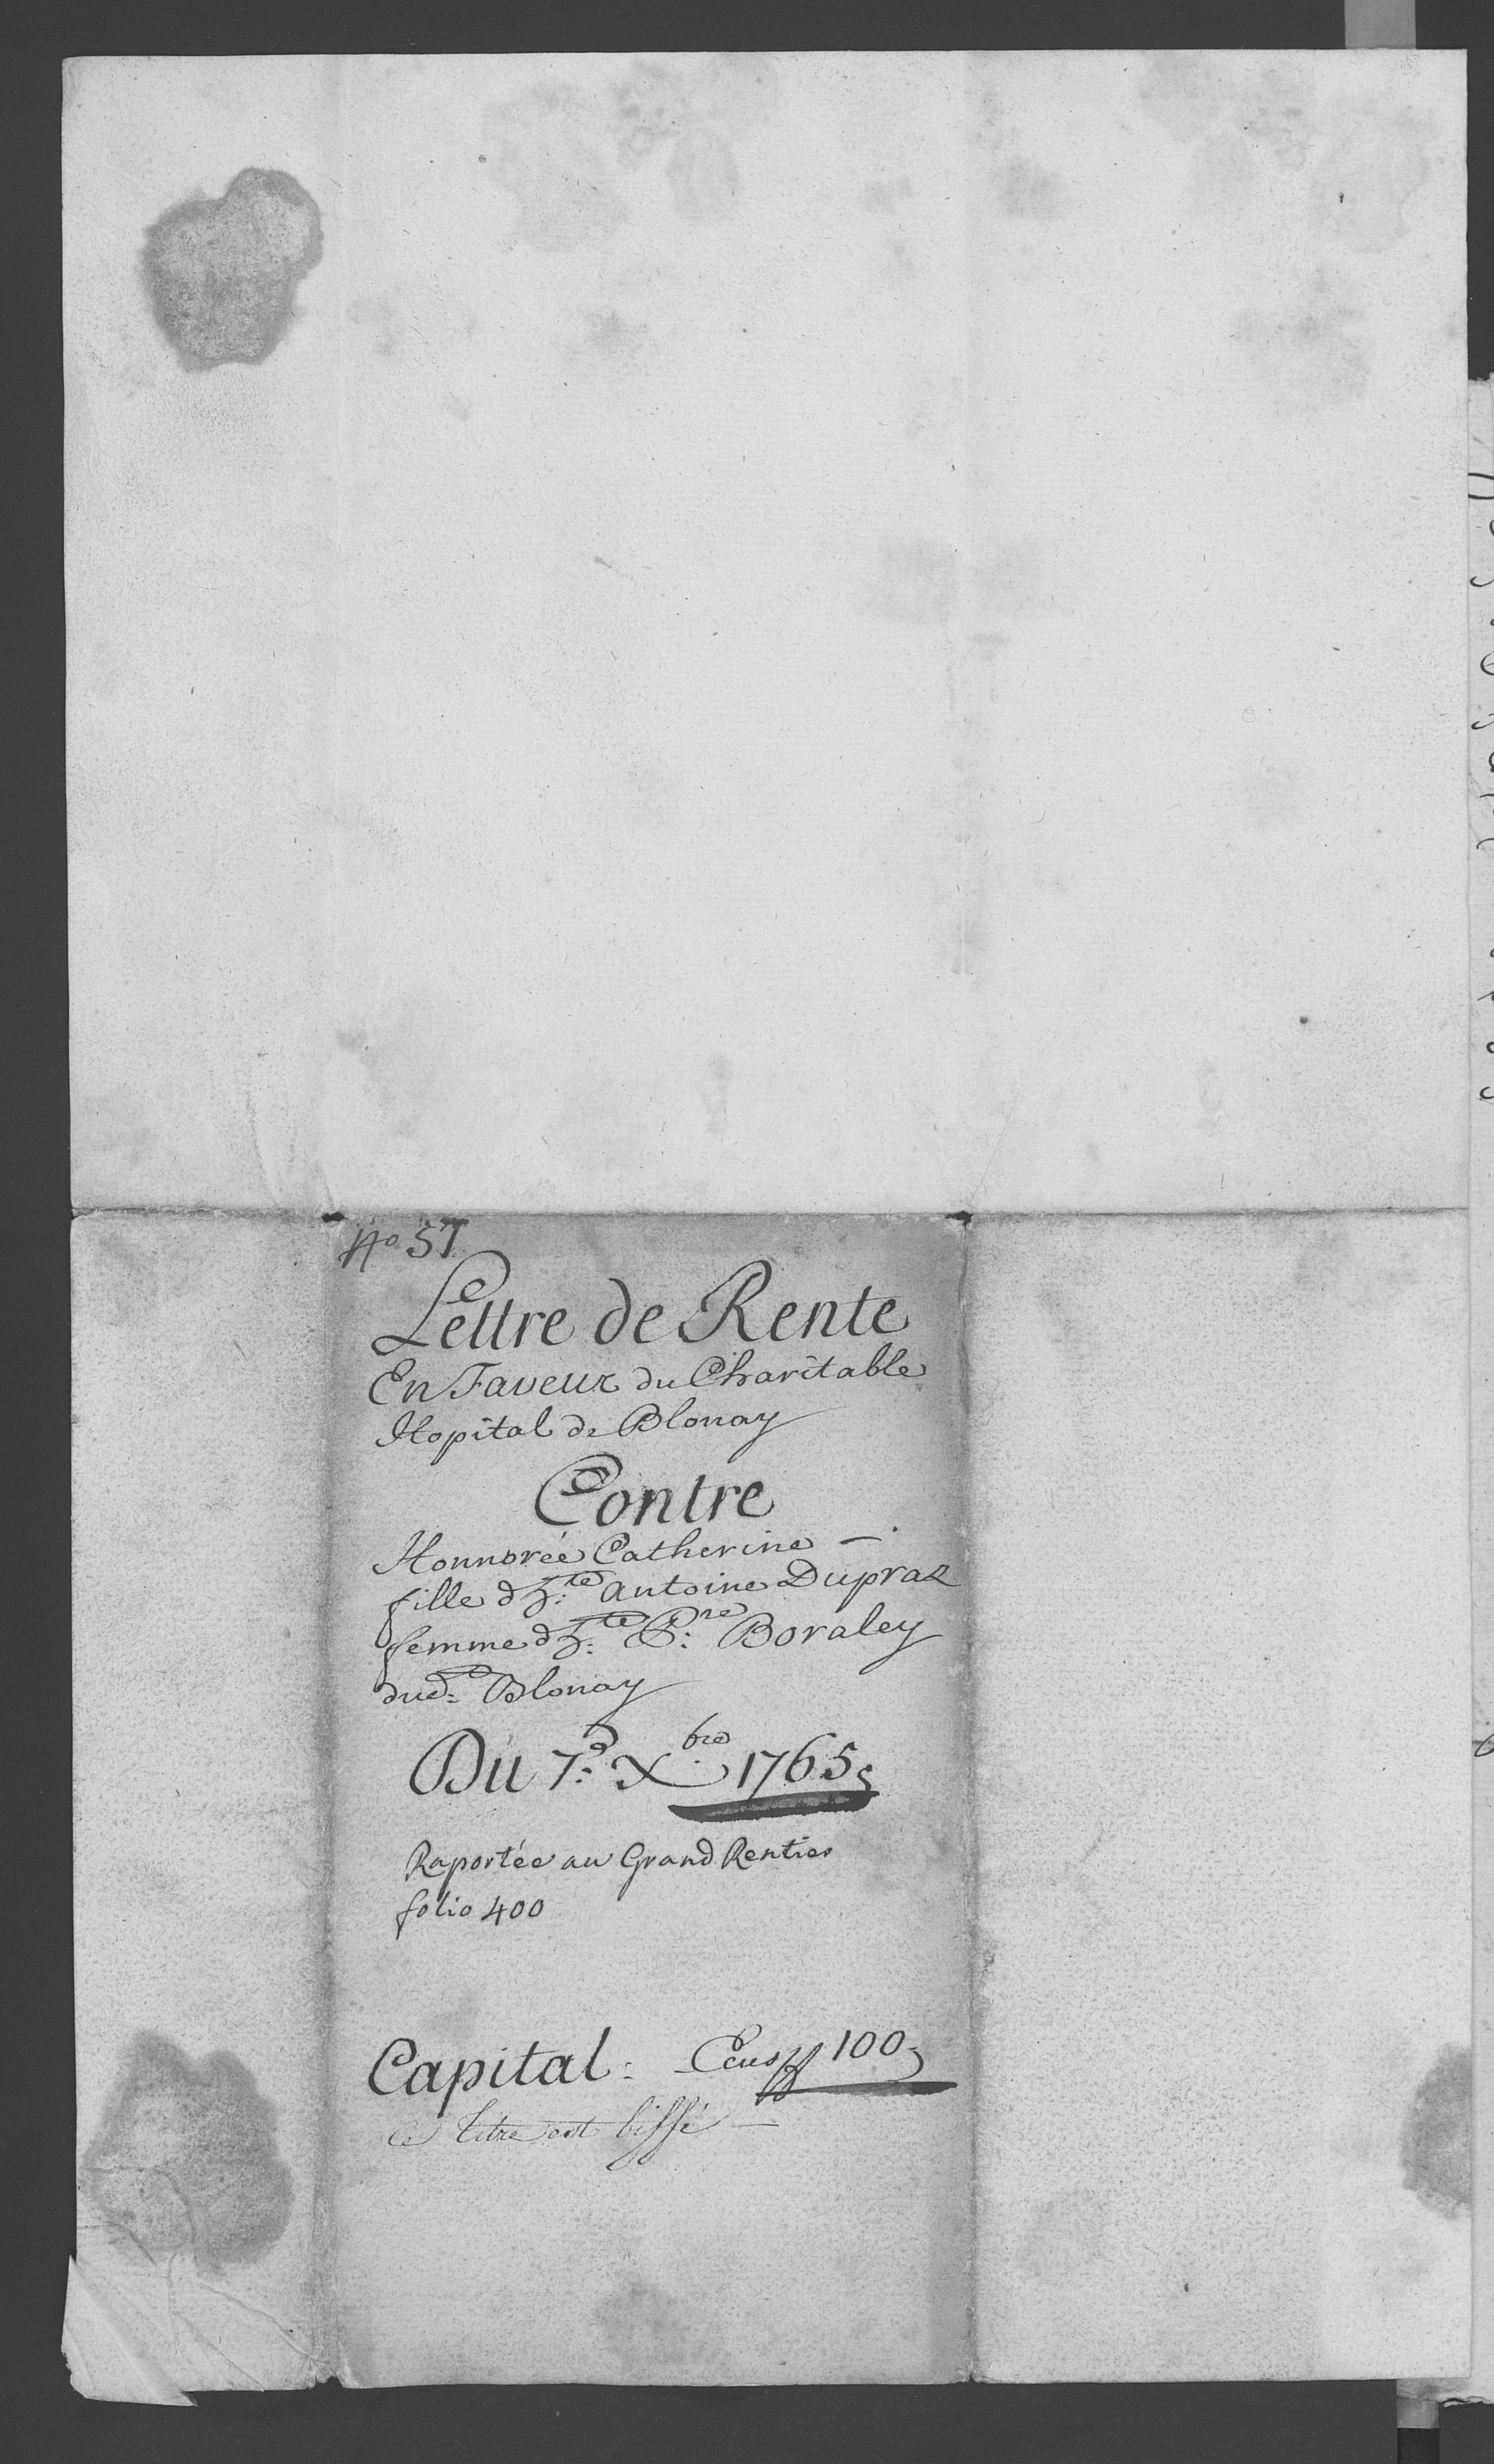 No 57
Lettre de Rente
En Faveur du Charitable
Hopital de Blonay
Contre
Honnorée Catherine —
fille d'h:te Antoine Dupraz
femme d'h:te P:re Boraley
dud: Blonay
Du 7:e X:bre 1765
Raportée au Grand Rentier
folio 400
Capital: Ecus 100
Ce titre est biffé —